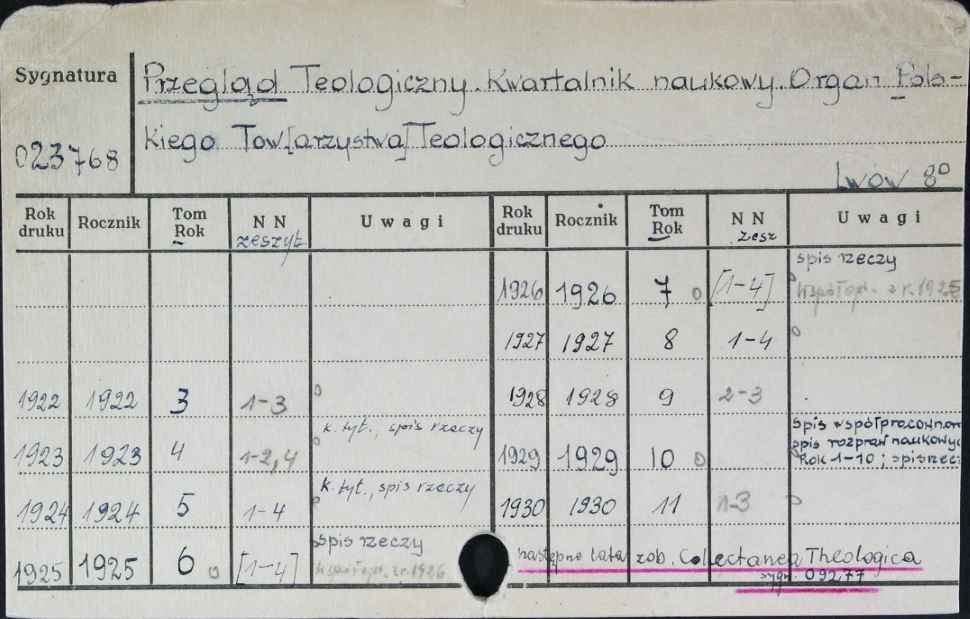 Sygnatura
023768
Przegląd Teologiczny. Kwartalnik naukowy. Organ Pols-
kiego Tow[arzystwa] Teologicznego
Lwów 8⁰
Rok druku Rocznik Tom Rok NN zeszyt Uwagi
1922 1922 3 1-3
1923 1923 4 1-2,4 k. tyt., spis rzeczy
1924 1924 5 1-4 k. tyt., spis rzeczy
1925 1925 6 [1-4] spis rzeczy
Współopr. z r. 1926
Rok druku Rocznik Tom Rok NN zesz Uwagi
1926 1926 7 [1-4] spis rzeczy
Współopr. z r. 1925
1927 1927 8 1-4
1928 1928 9 2-3
1929 1929 10 spis współpracown
spis rozpraw naukowy
Rok 1-10; spis rzec
1930 1930 11 1-3
następne lata zob. Collectanea Theologica
sygn. 09277